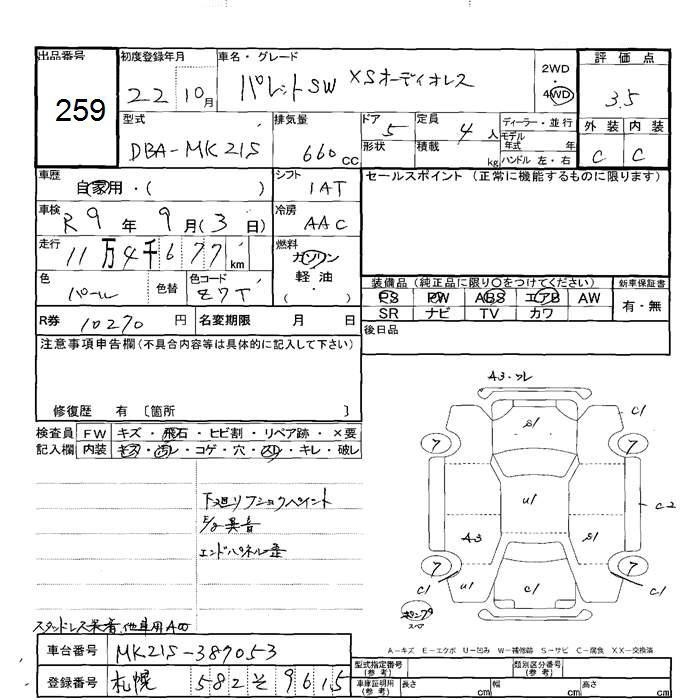 出品番号
259
初度登録年月
22 10月
車名・グレード
パレットSW XSオーディオレス
2WD
・
4WD
評価点
3.5
外装 内装
C C
型式
DBA-MK21S
排気量
660cc
ドア
5
形状
定員
4人
積載
kg
ディーラー・並行
モデル
年式 年
ハンドル 左・右
車歴
自家用・( )
シフト
IAT
セールスポイント (正常に機能するものに限ります)
車検
R9年 9月(3日)
冷房
AAC
走行
11万4千677km
燃料
ガソリン
軽油
( ・ )
色
パール
色替
色コード
Z7T
装備品(純正品に限り〇をつけてください)
PS PW ABS エアB AW
SR ナビ TV カワ
新車保証書
有・無
R券 10270円
名変期限 月 日
後日品
注意事項申告欄(不具合内容等は具体的に記入して下さい)
修復歴 有 〔箇所 〕
検査員 FW キズ・飛石・ヒビ割・リペア跡・×要
記入欄 内装 キズ・汚レ・コゲ・穴・スレ・キレ・破レ
下廻リフショクペイント
異音
エンドパネル歪
スタッドレス装着、他車用AW
A3・ワレ
S1
C1
7
7
U1
C2
A3
S1
7
7
C1
U1
C1
C1
スペア
A-キズ E-エクボ U-凹み W-補修跡 S-サビ C-腐食 XX-交換済
車台番号 MK21S-387053
登録番号 札幌 582 そ 9615
型式指定番号
(参考)
類別区分番号
(参考)
車庫証明用
(参考)
長さ cm
幅 cm
高さ cm